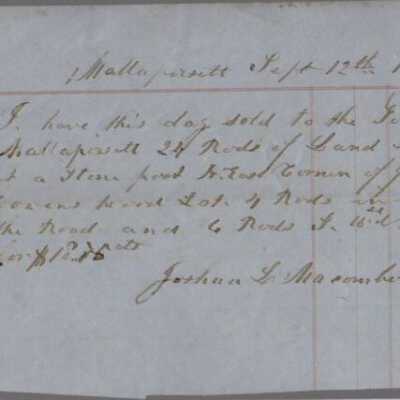 Mattapoisett Sept 12th 1
I have this day sold to the
Mattapoisett 24 Rods of Land
at a Stone post N. East Corner of
wood Lot. 4 Rods in
the Road and 6 Rods S. 16 d
for $10.
Joshua L Macomber